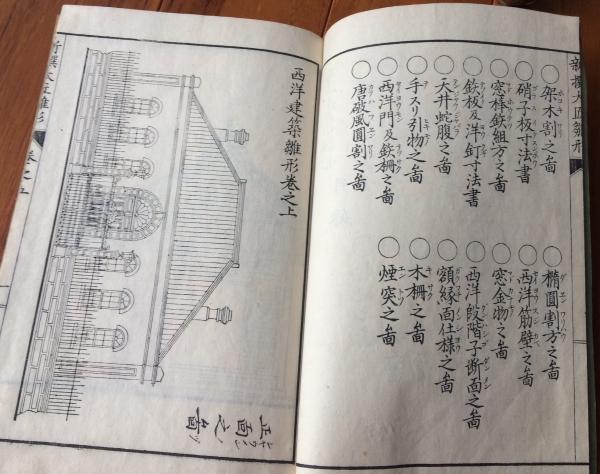 新撰大匠雛形
○架木割之啚
○硝子板寸法書
○窓棒鉄組方之啚
○鉄板及洋釘寸法書
○天井蛇腹之啚
○手スリ引物之啚
○西洋門及鉄柵之啚
○唐破風圓割之啚
○楕圓割方之啚
○西洋筋壁之啚
○窓金物之啚
○西洋段階子断面之啚
○額縁面仕様之啚
○木柵之啚
○煙突之啚
西洋建築雛形巻之上
正面之啚
新撰大匠雛形 巻之五